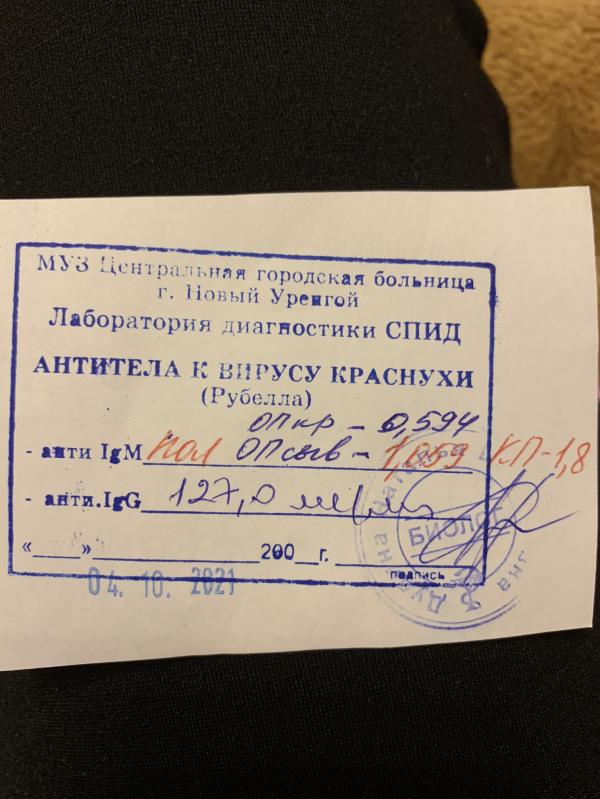 МУЗ Центральная городская больница
г. Новый Уренгой
Лаборатория диагностики СПИД
АНТИТЕЛА К ВИРУСУ КРАСНУХИ
(Рубелла)
ОПкр - 0,594
- анти IgM пол ОПсыв - 1,059 КП-1,8
- анти.IgG 127,0
« » 200 г.
подпись
04. 10. 2021
БИОЛОГ
Наталья